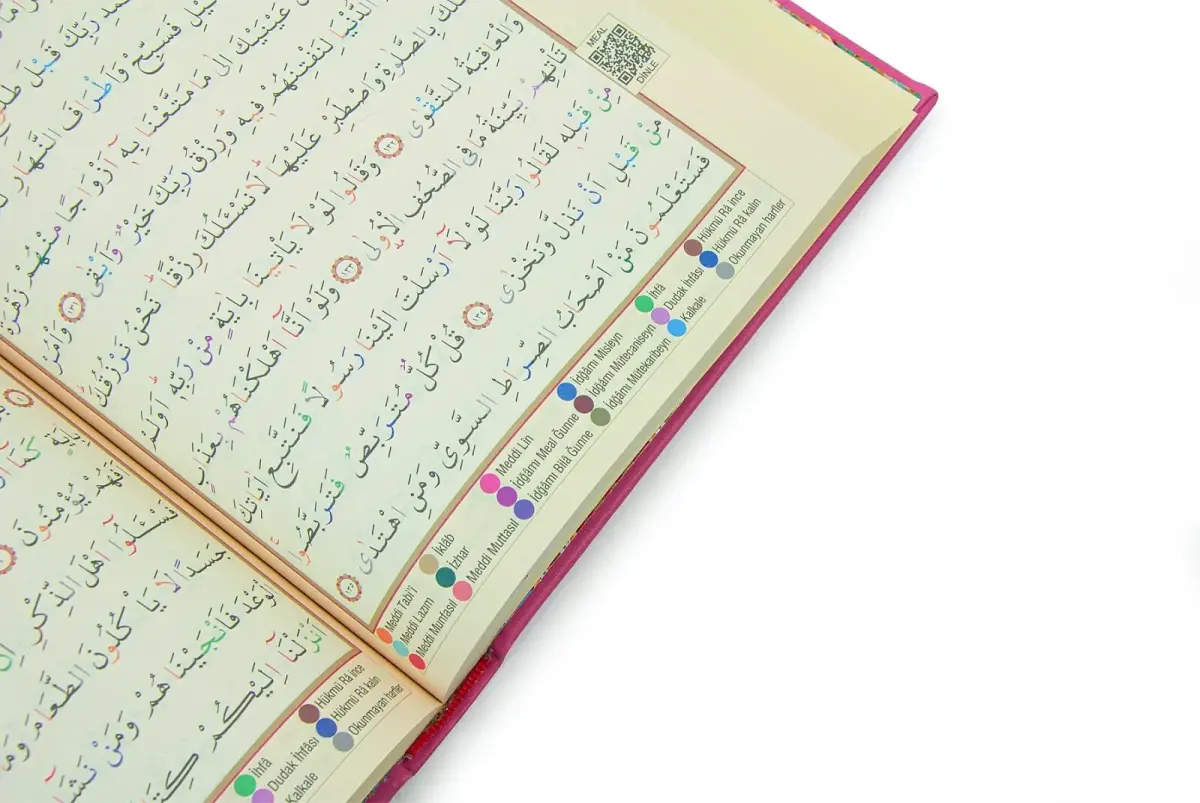 رَبِّكَ قَبْلَ
فَسَبِّحْ وَاَطْرَافَ النَّهَارِ
عَيْنَيْكَ اِلٰى مَا مَتَّعْنَا بِه۪ٓ اَزْوَاجًا مِنْهُمْ زَهْرَةَ
الدُّنْيَا لِنَفْتِنَهُمْ ف۪يهِ وَرِزْقُ رَبِّكَ خَيْرٌ وَاَبْقٰى ﴿١٣١﴾ وَأْمُرْ
بِالصَّلٰوةِ وَاصْطَبِرْ عَلَيْهَا لَا نَسْـَٔلُكَ رِزْقًا نَحْنُ نَرْزُقُكَ
وَالْعَاقِبَةُ لِلتَّقْوٰى ﴿١٣٢﴾ وَقَالُوا لَوْلَا يَأْت۪ينَا بِاٰيَةٍ مِنْ رَبِّه۪ اَوَلَمْ
تَأْتِهِمْ بَيِّنَةُ مَا فِي الصُّحُفِ الْاُو۫لٰى ﴿١٣٣﴾ وَلَوْ اَنَّٓا اَهْلَكْنَاهُمْ بِعَذَابٍ
مِنْ قَبْلِه۪ لَقَالُوا رَبَّنَا لَوْلَٓا اَرْسَلْتَ اِلَيْنَا رَسُولًا فَنَتَّبِعَ اٰيَاتِكَ
مِنْ قَبْلِ اَنْ نَذِلَّ وَنَخْزٰى ﴿١٣٤﴾ قُلْ كُلٌّ مُتَرَبِّصٌ فَتَرَبَّصُوا
فَسَتَعْلَمُونَ مَنْ اَصْحَابُ الصِّرَاطِ السَّوِيِّ وَمَنِ اهْتَدٰى ﴿١٣٥﴾
MEAL
DİNLE
Meddi Tabi'î
Meddi Lazım
Meddi Munfasıl
İklâb
İzhar
Meddi Muttasıl
Meddi Lin
İdğâmı Meal Ğunne
İdğâmı Bilâ Ğunne
İdğâmı Misleyn
İdğâmı Mütecaniseyn
İdğâmı Mütekaribeyn
İhfâ
Dudak İhfâsı
Kalkale
Hükmü Râ ince
Hükmü Râ kalın
Okunmayan harfler
كَمَٓا
يُؤْمِنُونَ
فَسْـَٔلُٓوا اَهْلَ الذِّكْرِ اِنْ
جَسَدًا لَا يَأْكُلُونَ الطَّعَامَ وَمَا
الْوَعْدَ فَاَنْجَيْنَاهُمْ وَمَنْ
اَنْزَلْنَٓا اِلَيْكُمْ
İhfâ
Dudak İhfâsı
Kalkale
Hükmü Râ ince
Hükmü Râ kalın
Okunmayan harfler